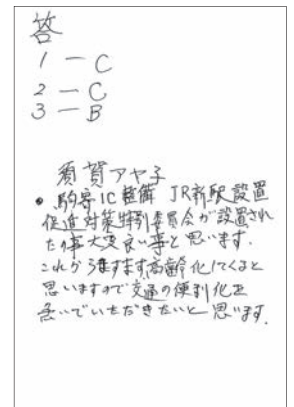 答
1 ー C
2 ー C
3 ー B
須賀アヤ子
• 駒寄IC JR新駅設置
促進対策特別委員会が設置され
た事大変良い事と思います。
これからますます高齢化してくると
思いますので交通の便利化を
急いでいただきたいと思います。